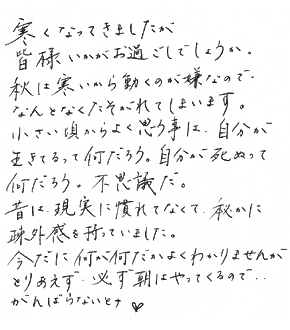 寒くなってきましたが
皆様いかがお過ごしでしょうか。
秋は寒いから動くのが嫌なので
なんとなくたそがれてしまいます。
小さい頃からよく思う事は、自分が
生きてるって何だろう。自分が死ぬって
何だろう。不思議だ。
昔は、現実に慣れてなくて、秘かに
疎外感を持っていました。
今だに何が何だかよくわかりませんが
とりあえず、必ず朝はやってくるので..
がんばらないとナ ♡